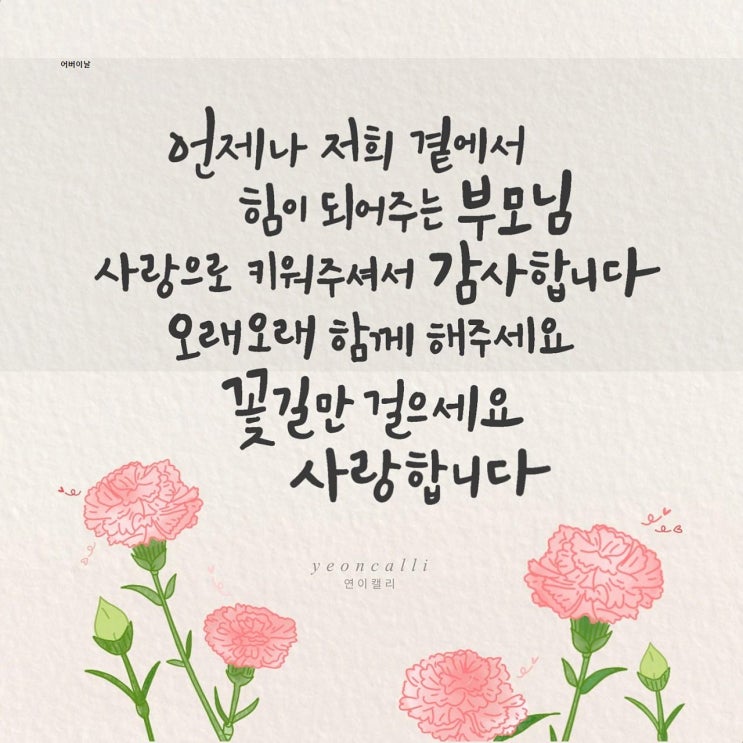 어버이날
언제나 저희 곁에서
힘이 되어주는 부모님
사랑으로 키워주셔서 감사합니다
오래오래 함께 해주세요
꽃길만 걸으세요
사랑합니다
yeoncalli
연이캘리